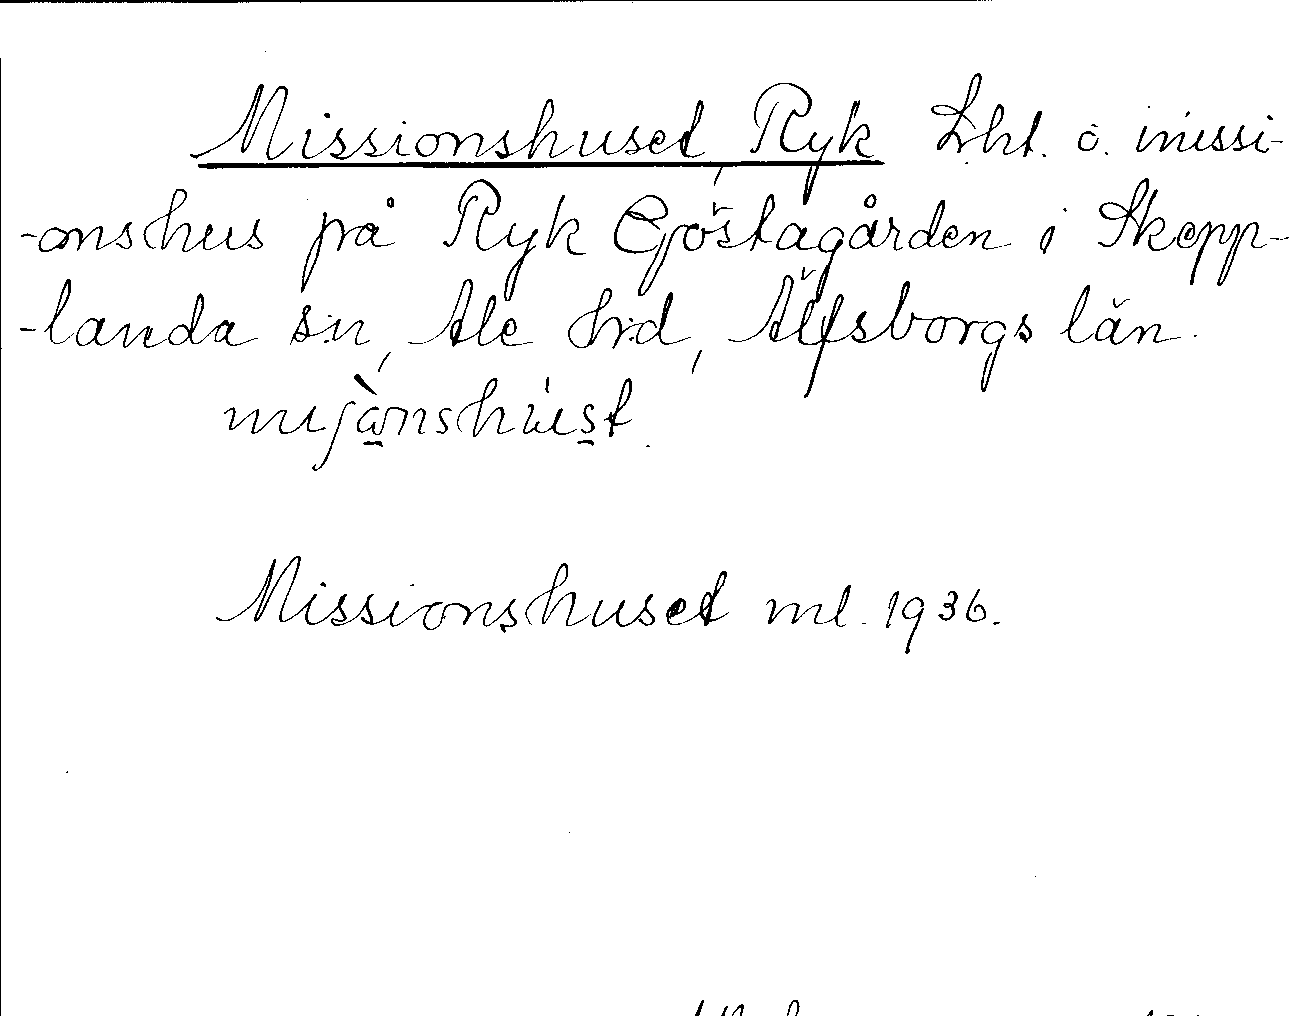 Missionshuset, Ryk Lht. o. missi-
-onshus på Ryk Göstagården i Skepp-
-landa sn, Ale hd, Älfsborgs län.
Missionshuset ml. 1936.